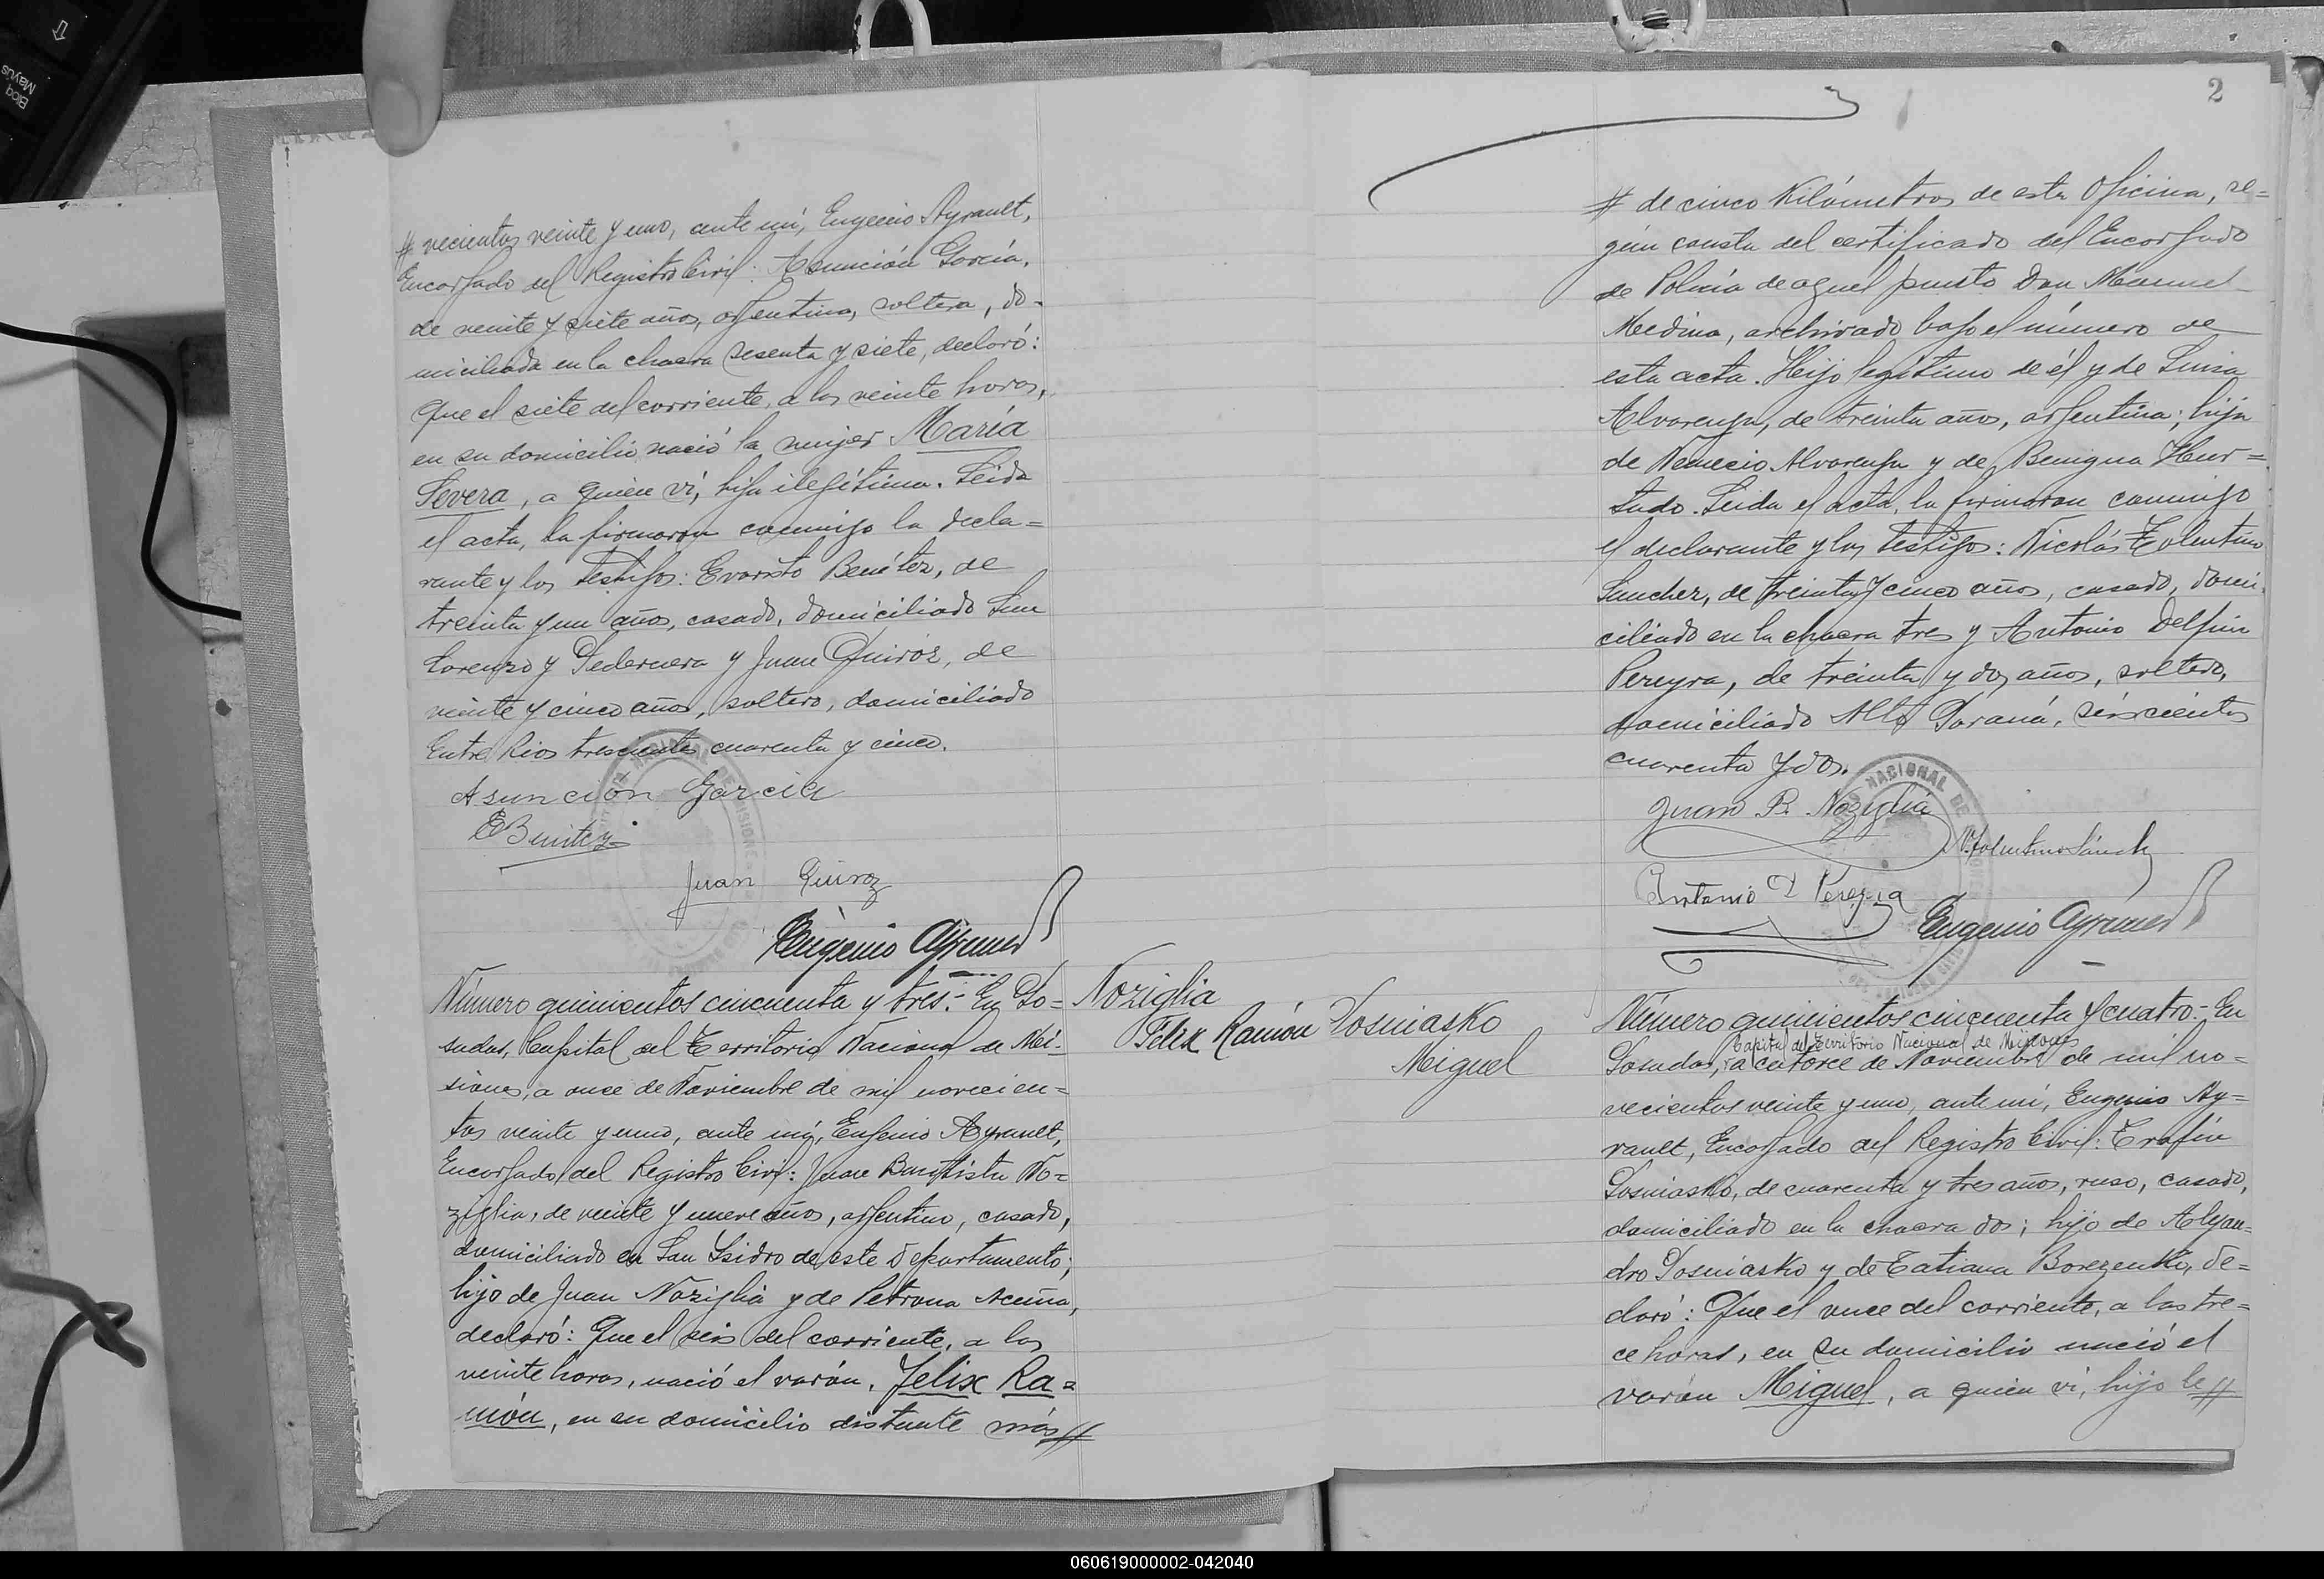 # vecientos veinte y uno, ante mí, Eugenio Ayrault,
Encargado del Registro Civil: Asunción García,
de veinte y siete años, argentina, soltera, do-
miciliada en la chacra sesenta y siete, declaró:
Que el siete del corriente, a las veinte horas,
en su domicilio nació la mujer María
Severa, a quien ví, hija ilegítima. Leida
el acta, la firmaron conmigo la decla=
rante y los testigos: Evaristo Benítez, de
treinta y un años, casado, domiciliado San
Lorenzo y Pedernera y Juan Quiroz, de
veinte y cinco años, soltero, domiciliado
Entre Rios trescientos cuarenta y cinco.
Asunción Garcia
EBenitez
Juan Quiroz
Eugenio Ayrault
Número quinientos cincuenta y tres.- En Po=
sadas, Capital del Territorio Nacional de Mi-
siones, a once de Noviembre de mil novecien=
tos veinte y uno, ante mí, Eugenio Ayrault,
Encargado del Registro Civil: Juan Bautista No=
ziglia, de veinte y nueve años, argentino, casado,
domiciliado en San Isidro de este Departamento;
hijo de Juan Noziglia y de Petrona Acuña,
declaró: Que el seis del corriente, a las
veinte horas, nació el varón, Felix Ra=
món, en su domicilio distante más #
Noziglia
Felix Ramón
2
# de cinco Kilómetros de esta Oficina, se=
gún consta del certificado del Encargado
de Policía de aquel puesto Don Manuel
Medina, archivado bajo el número de
esta acta. Hijo legítimo de él y de Luisa
Alvarenga, de treinta años, argentina; hija
de Nemecio Alvarenga y de Benigna Hur=
tado. Leida el acta, la firmaron conmigo
el declarante y los testigos: Nicolás Tolentino
Sanchez, de treinta y cinco años, casado, domi-
ciliado en la chacra tres y Antonio Delfin
Pereyra, de treinta y dos años, soltero,
domiciliado Alto Paraná, seiscientos
cuarenta y dos.
Juan B. Noziglia
N. Tolentino Sánchz
Antonio D Pereyra
Eugenio Ayrault
Posniasko
Miguel
Número quinientos cincuenta y cuatro.- En
Capital del Territorio Nacional de Misiones
Posadas, a catorce de Noviembre de mil no=
vecientos veinte y uno, ante mí, Eugenio Ay=
rault, Encargado del Registro Civil: Trofin
Posniasko, de cuarenta y tres años, ruso, casado,
domiciliado en la chacra dos; hijo de Alejan=
dro Posniasko y de Tatiana Borezenko, de=
claró: Que el once del corriente, a las tre=
ce horas, en su domicilio nació el
varón Miguel, a quien ví, hijo le #
060619000002-042040